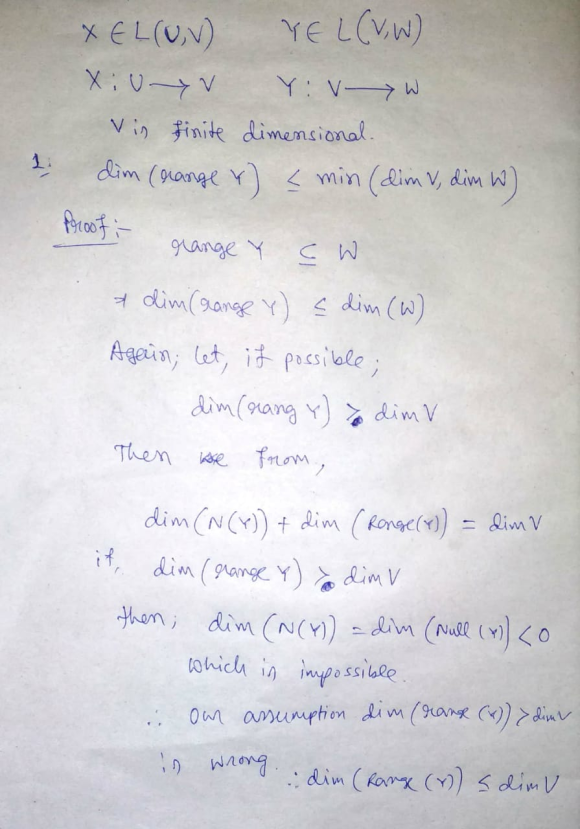 X ∈ L(U,V) Y ∈ L(V,W)
X : U → V Y : V → W
V is finite dimensional.
1. dim (range Y) ≤ min (dim V, dim W)
Proof :-
range Y ⊆ W
⇒ dim(range Y) ≤ dim (W)
Again; let, if possible;
dim(rang Y) > dim V
Then from,
dim(N(Y)) + dim (Range(Y)) = dim V
if, dim (range Y) > dim V
then; dim (N(Y)) = dim (Null (Y)) < 0
which is impossible.
∴ our assumption dim (range (Y)) > dim V
is wrong. ∴ dim (Range (Y)) ≤ dim V